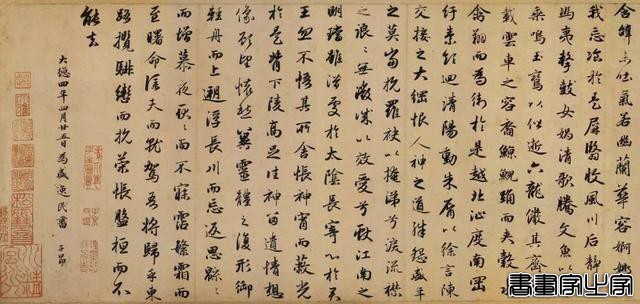 含辭未吐氣若幽蘭華容婀娜
我忘飡於是屏翳收風川后靜
馮夷擊鼓女媧清歌騰文魚以
乘鳴玉鸞以偕逝六龍儼其齊
載雲車之容裔鯨鯢踊而夾轂水
禽翔而為衛於是越北沚度南岡
紆素領迴清陽動朱脣以徐言陳
交接之大綱恨人神之道殊怨盛年
之莫當抗羅袂以掩涕兮淚流襟
之浪浪無微情以效愛兮獻江南之
明璫雖潛處於太陰長寄心於君
王忽不悟其所舍悵神宵而蔽光
於是背下陵高足往神留遺情想
像顧望懷愁冀靈體之復形御
輕舟而上遡浮長川而忘返思綿綿
而增慕夜耿耿而不寐霑繁霜而
至曙命僕夫而就駕吾將歸乎東
路攬騑轡而抗策悵盤桓而不
能去
大德四年四月廿五日為盛逸民書 子昂
書畫家之家